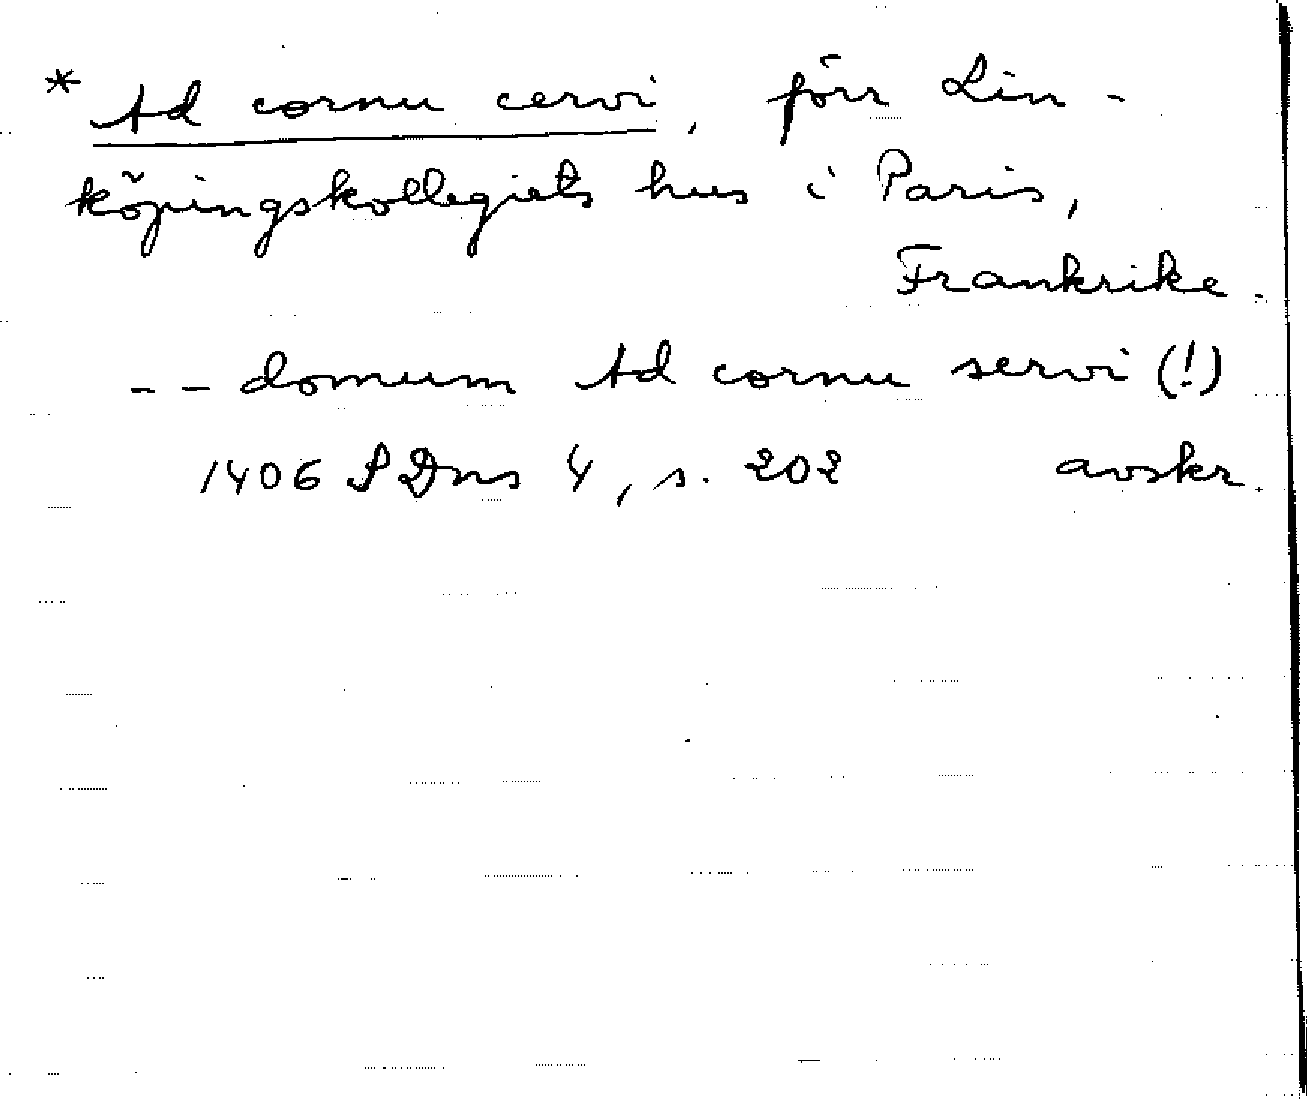 * Ad cornu cervi, förr Lin-
köpingskollegiets hus i Paris,
Frankrike.
- - domum Ad cornu servi (!)
1406 SDns 4, s. 202 avskr.